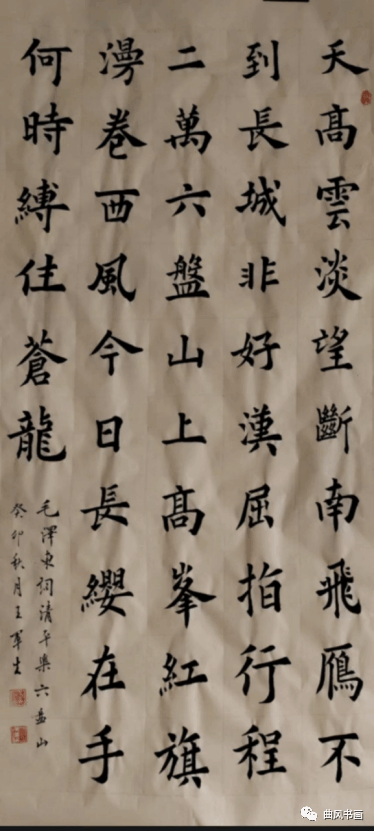 天高雲淡望斷南飛鴈不
到長城非好漢屈指行程
二萬六盤山上高峯紅旗
漫卷西風今日長纓在手
何時縛住蒼龍
毛澤東詞清平樂六盘山
癸卯秋月王軍生
曲风书画